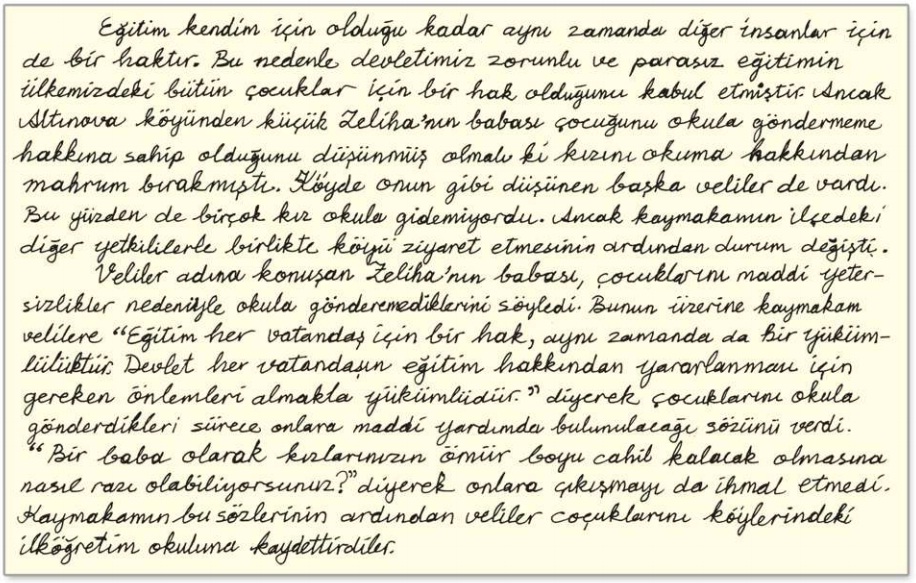 Eğitim kendim için olduğu kadar aynı zamanda diğer insanlar için
de bir haktır. Bu nedenle devletimiz zorunlu ve parasız eğitimin
ülkemizdeki bütün çocuklar için bir hak olduğunu kabul etmiştir. Ancak
Altınova köyünden küçük Zeliha'nın babası çocuğunu okula göndermeme
hakkına sahip olduğunu düşünmüş olmalı ki kızını okuma hakkından
mahrum bırakmıştı. Köyde onun gibi düşünen başka veliler de vardı.
Bu yüzden de birçok kız okula gidemiyordu. Ancak kaymakamın ilçedeki
diğer yetkililerle birlikte köyü ziyaret etmesinin ardından durum değişti.
Veliler adına konuşan Zeliha'nın babası, çocuklarını maddi yeter-
sizlikler nedeniyle okula gönderemediklerini söyledi. Bunun üzerine kaymakam
velilere "Eğitim her vatandaş için bir hak, aynı zamanda da bir yüküm-
lülüktür. Devlet her vatandaşın eğitim hakkından yararlanması için
gereken önlemleri almakla yükümlüdür." diyerek çocuklarını okula
gönderdikleri sürece onlara maddi yardımda bulunulacağı sözünü verdi.
"Bir baba olarak kızlarınızın ömür boyu cahil kalacak olmasına
nasıl razı olabiliyorsunuz?" diyerek onlara çıkışmayı da ihmal etmedi.
Kaymakamın bu sözlerinin ardından veliler coçuklarını köylerindeki
ilköğretim okuluna kaydettirdiler.